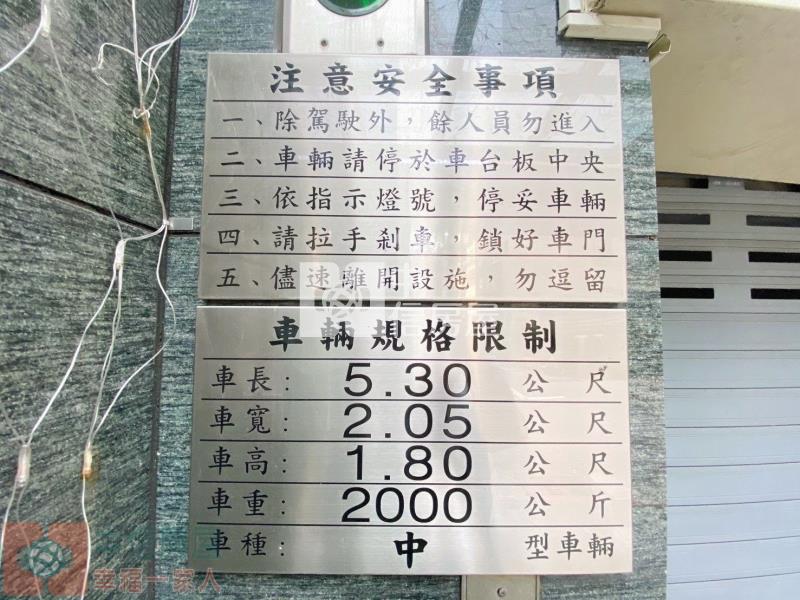 注意安全事項
一、除駕駛外，餘人員勿進入
二、車輛請停於車台板中央
三、依指示燈號，停妥車輛
四、請拉手剎車，鎖好車門
五、儘速離開設施，勿逗留
車輛規格限制
車長: 5.30 公尺
車寬: 2.05 公尺
車高: 1.80 公尺
車重: 2000 公斤
車種: 中 型車輛
幸福一家人